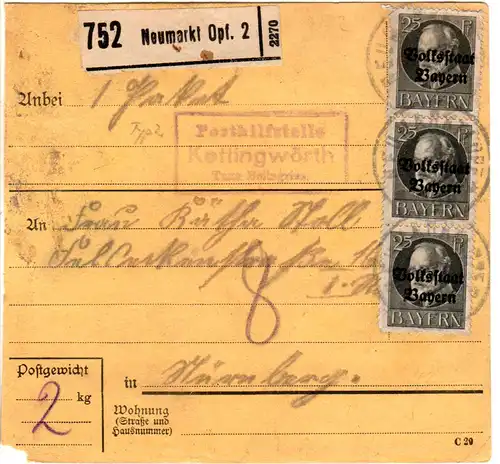 752 Neumarkt Opf. 2 2270
25 Pf
Volksstaat
Bayern
BAYERN
Anbei 1 Paket
Typ 2
Posthilfstelle
Kottingwörth
Taxe
25 Pf
Volksstaat
Bayern
BAYERN
An Frau Käthe Noll
8
25 Pf
Volksstaat
Bayern
BAYERN
Postgewicht
2 kg
in Nürnberg.
Wohnung
(Straße und
Hausnummer)
C 20